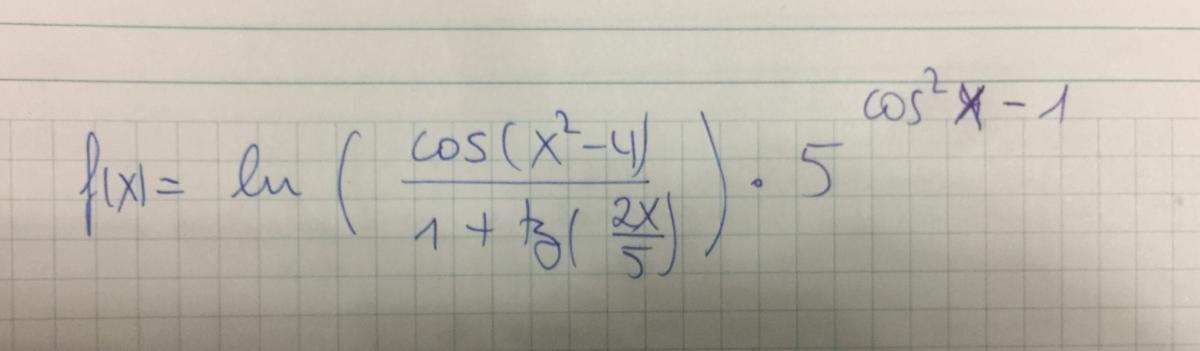 f(x) = ln ( cos(x²-4) / 1 + tg( 2x/5 ) ) · 5^cos²x - 1